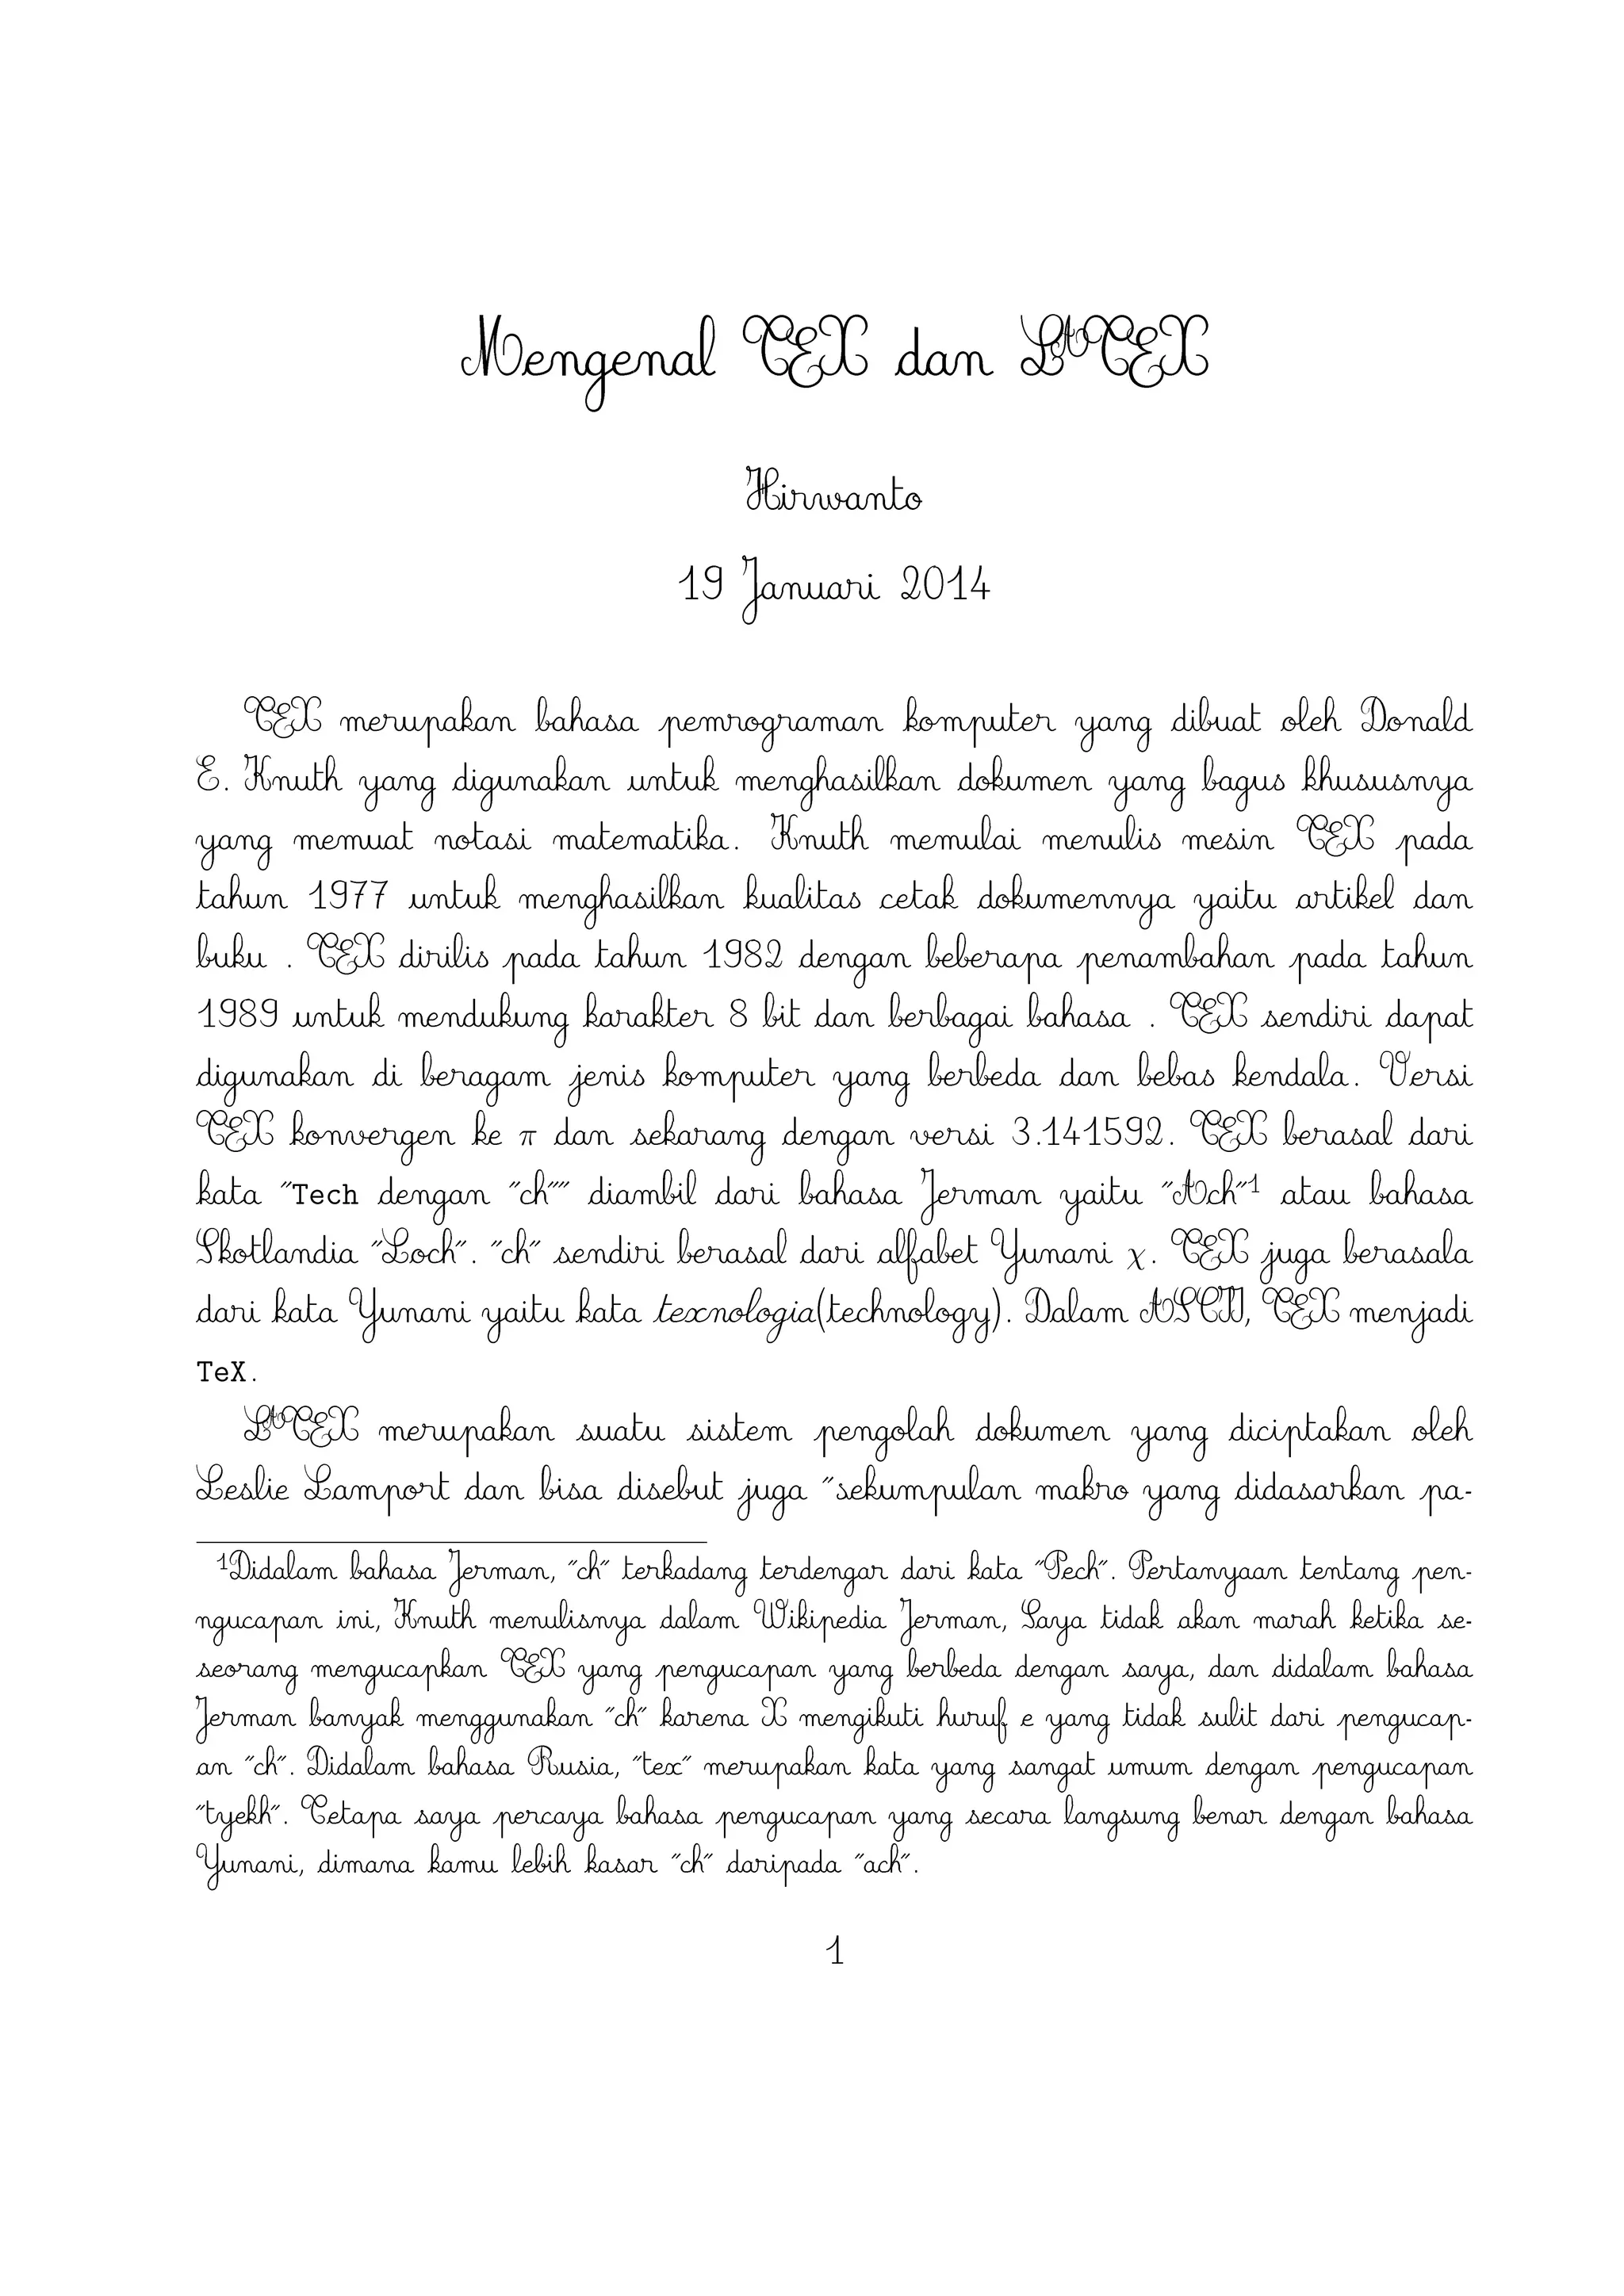 Mengenal TEX dan LATEX
Hirwanto
19 Januari 2014
TEX merupakan bahasa pemrograman komputer yang dibuat oleh Donald
E. Knuth yang digunakan untuk menghasilkan dokumen yang bagus khususnya
yang memuat notasi matematika. Knuth memulai menulis mesin TEX pada
tahun 1977 untuk menghasilkan kualitas cetak dokumennya yaitu artikel dan
buku . TEX dirilis pada tahun 1982 dengan beberapa penambahan pada tahun
1989 untuk mendukung karakter 8 bit dan berbagai bahasa . TEX sendiri dapat
digunakan di beragam jenis komputer yang berbeda dan bebas kendala. Versi
TEX konvergen ke π dan sekarang dengan versi 3.141592. TEX berasal dari
kata "Tech dengan "ch"" diambil dari bahasa Jerman yaitu "Ach"¹ atau bahasa
Skotlandia "Loch". "ch" sendiri berasal dari alfabet Yunani χ. TEX juga berasala
dari kata Yunani yaitu kata texnologia(technology). Dalam ASCII, TEX menjadi
TeX.
LATEX merupakan suatu sistem pengolah dokumen yang diciptakan oleh
Leslie Lamport dan bisa disebut juga "sekumpulan makro yang didasarkan pa-
¹Didalam bahasa Jerman, "ch" terkadang terdengar dari kata "Pech". Pertanyaan tentang pen-
ngucapan ini, Knuth menulisnya dalam Wikipedia Jerman, Saya tidak akan marah ketika se-
seorang mengucapkan TEX yang pengucapan yang berbeda dengan saya, dan didalam bahasa
Jerman banyak menggunakan "ch" karena X mengikuti huruf e yang tidak sulit dari pengucap-
an "ch". Didalam bahasa Rusia, "tex" merupakan kata yang sangat umum dengan pengucapan
"tyekh". Tetapa saya percaya bahasa pengucapan yang secara langsung benar dengan bahasa
Yunani, dimana kamu lebih kasar "ch" daripada "ach".
1